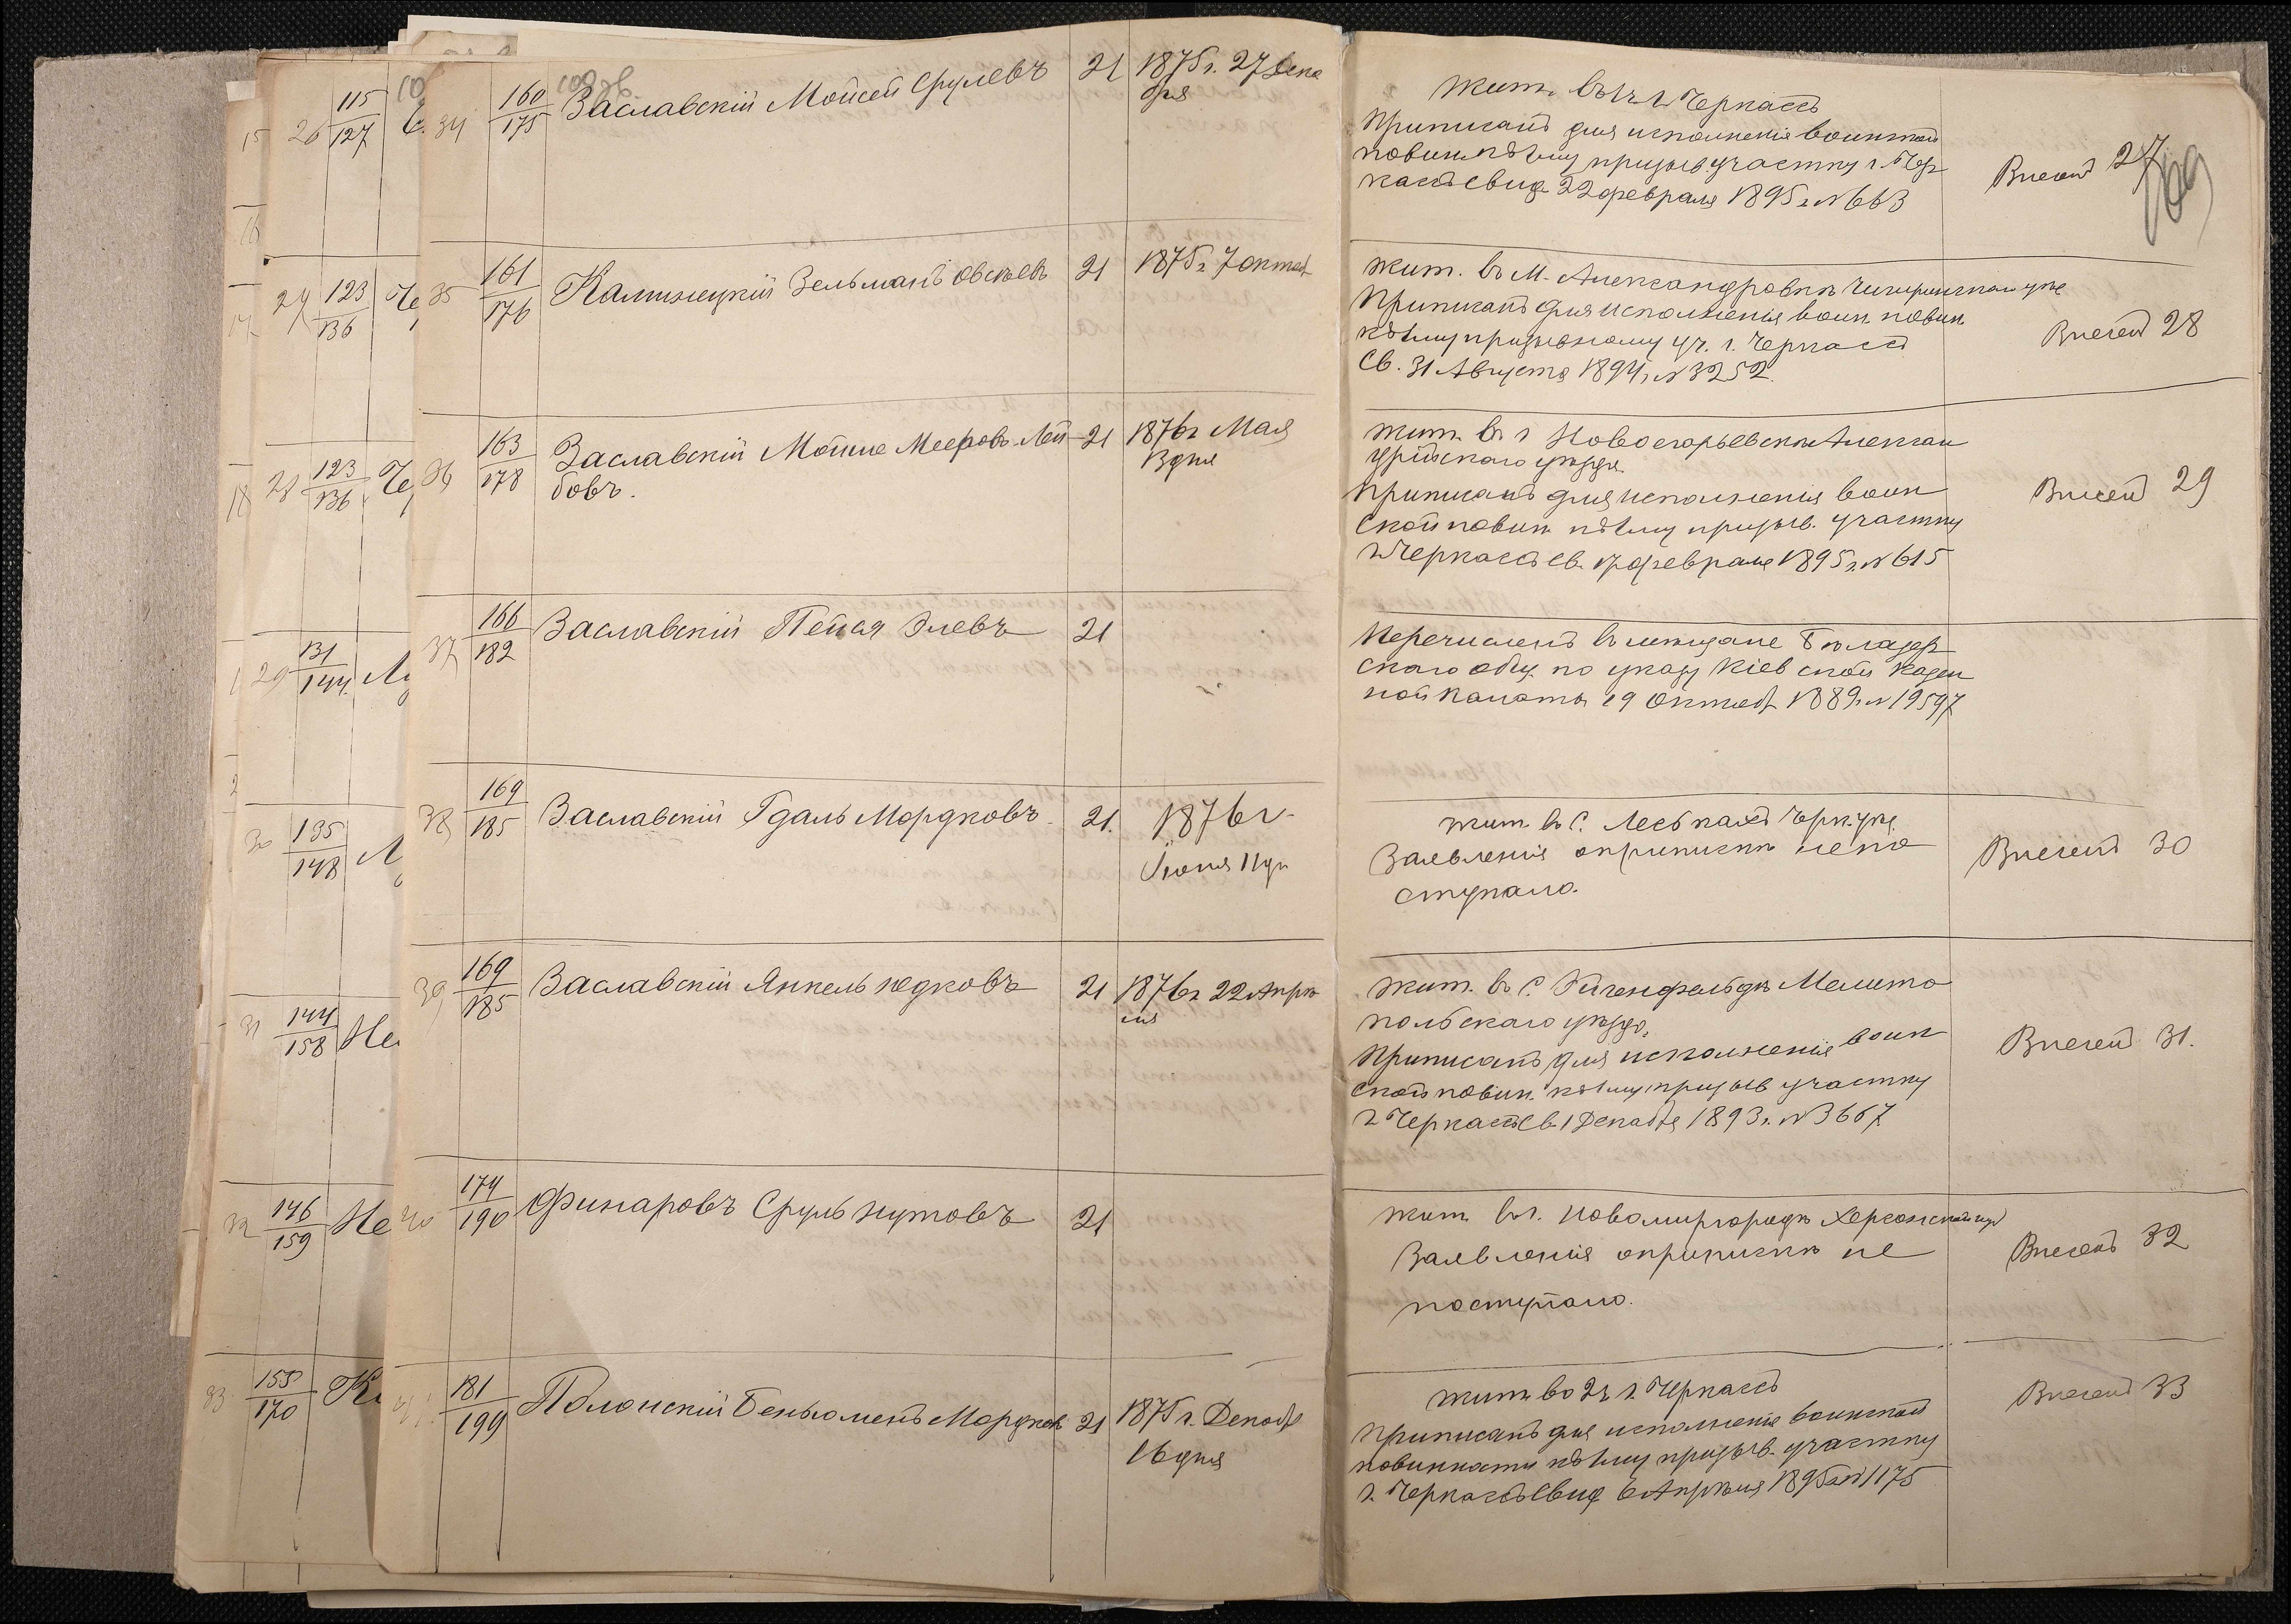 34 160/175 Заславскій Мойсей Срулевъ 21 1875 г. 27 Дека
бря
Жит. въ 1 ч. г. Черкассъ
Приписанъ для исполненія воинской
повин. къ 1му призыв. участку г. Чер
кассъ свид. 22 февраля 1895 г. № 663
Внесенъ 27
35 161/176 Калинецкій Зельманъ Овсѣевъ 21 1875 г. 7 октяб
Жит. въ М. Александровкѣ Чигиринскаго уѣз
Приписанъ для исполненія воин. повин.
къ 1му призывному уч. г. Черкассъ
Св. 31 Августа 1894 г. № 3252.
Внесенъ 28
36 163/178 Заславскій Мошко Мееровъ-Лей- 21 1876 г. Мая
бовъ. 3 дня
Жит. въ г. Новогеоргіевскѣ Алексан
дрійскаго уѣзда
Приписанъ для исполненія воин
ской повин. къ 1му призыв. участку
г. Черкассъ св. 17 февраля 1895 г. № 615
Внесенъ 29
37 166/182 Заславскій Пейся Элевъ 21
Перечисленъ въ мѣщане Бѣлацер
скаго общ. по указу Кіевской Казен
ной Палаты 19 Октяб 1889 г. № 19597
38 169/185 Заславскій Гдаль Мордковъ. 21. 1876 г.
Іюня 11 дн
Жит. въ С. Леськахъ Черк. уѣз.
Заявленія о припискѣ не по
ступало.
Внесенъ 30
39 169/185 Заславскій Янкель Юдковъ 21 1876 г. 22 Апрѣ
ля
Жит. въ С. Эйгенфельдѣ Мелито
польскаго уѣзда.
Приписанъ для исполненія воин
ской повин. къ 1му призыв участку
г. Черкассъ св. 1 Декабря 1893 г. № 3667
Внесенъ 31.
40 174/190 Финаровъ Сруль Нутовъ 21
Жит. въ г. Новомиргородѣ Херсонской губ
Заявленія о припискѣ не
поступало.
Внесенъ 32
181/199 Полонскій Беньюменъ Мордков 21 1875 г. Декабр
16 дня
Жит. во 2 ч. г. Черкассъ
Приписанъ для исполненія воинской
повинности къ 1му призыв. участку
г. Черкассъ свид 6 Апрѣля 1895 г. № 1175
Внесенъ 33
26 115/127
27 123/136 Че
28 123/136 Че
29 131/144
30 135/148
31 144/158 Не
32 146/159 Не
33 155/170